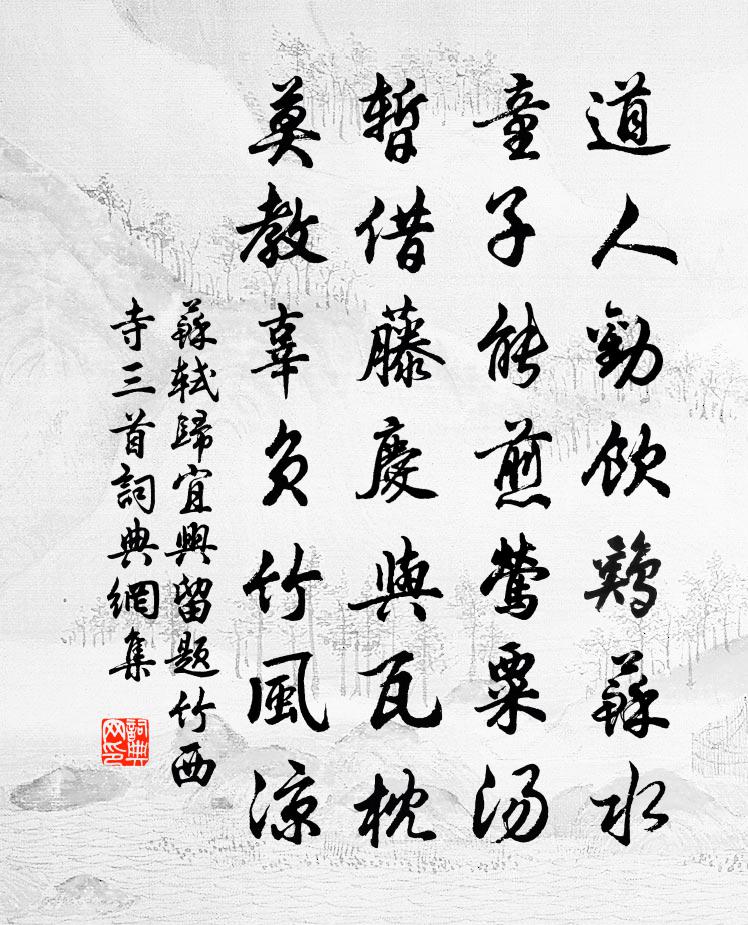 道人勸飲鷄蘇水
童子能煎鶯粟湯
暫借藤慶與瓦枕
莫教辜負竹風涼
蘇軾歸宜興留題竹西
寺三首詞典網集
詞典
网印